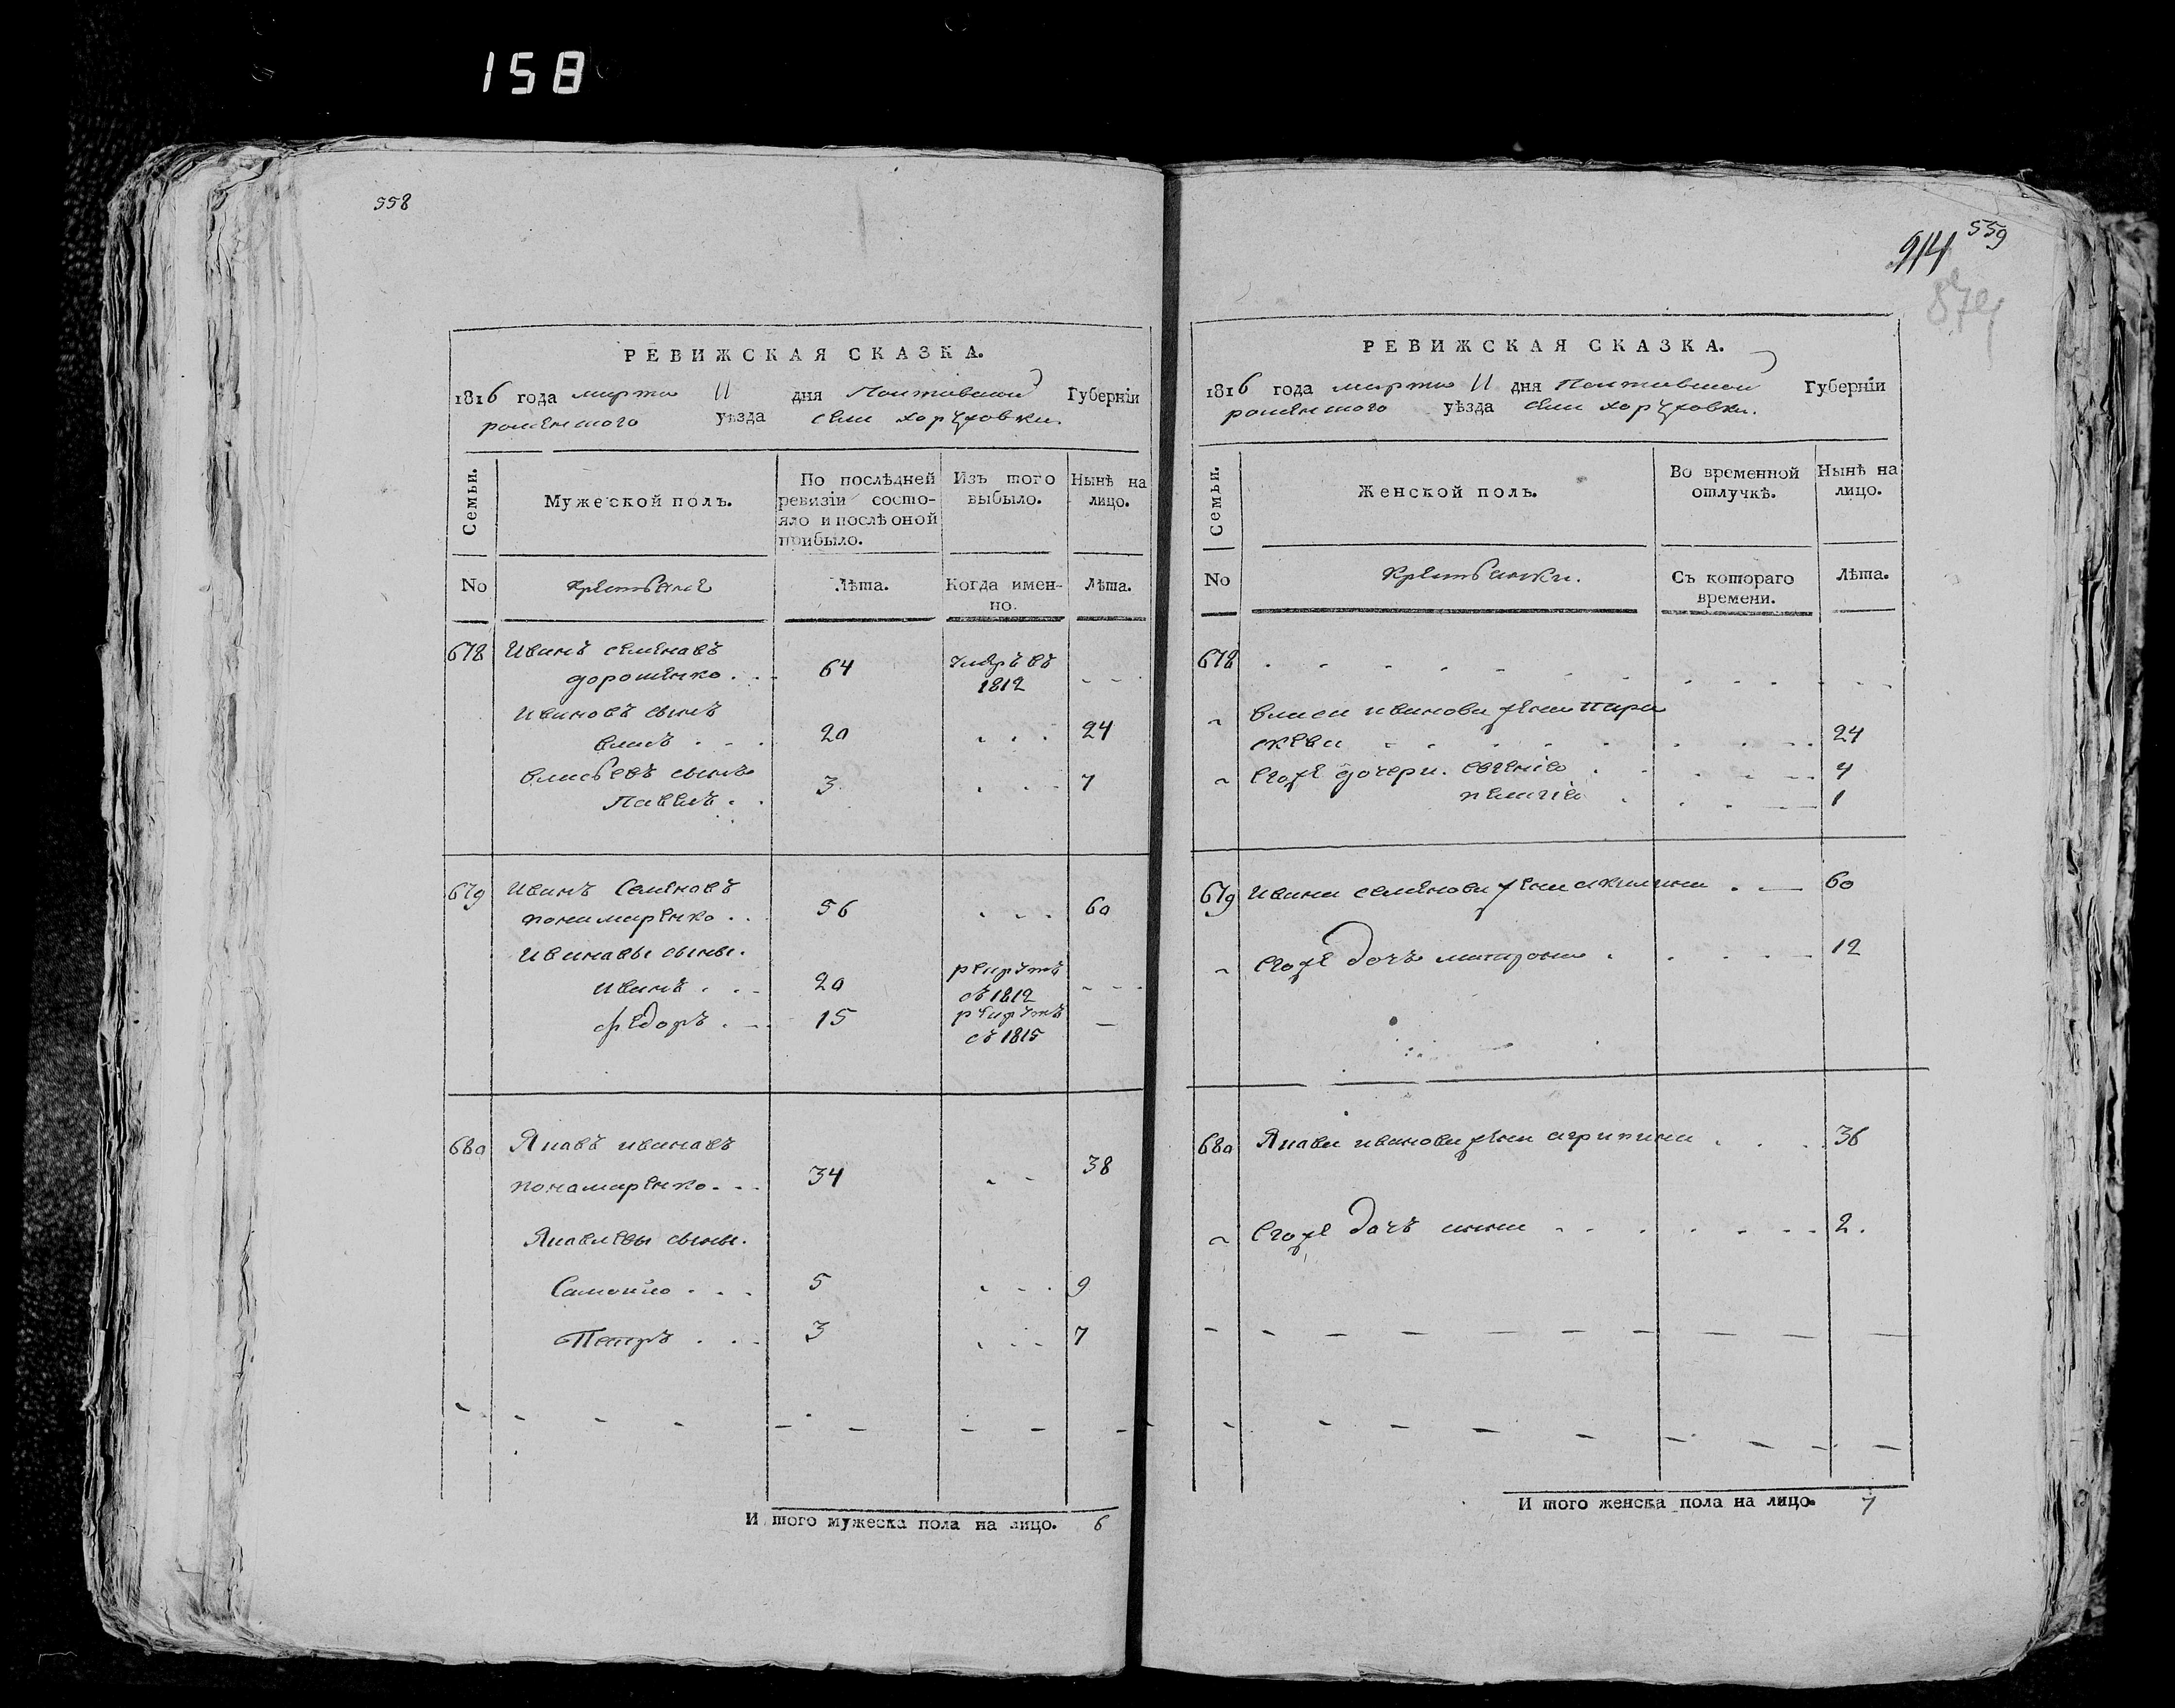 158
558
РЕВИЖСКАЯ СКАЗКА.
1816 года марта 11 дня Полтавской Губерніи
роменского уѣзда села харуховки.
Семьи.
Мужеской полъ.
По послѣдней
ревизіи состо-
яло и послѣ оной
прибыло.
Изъ того
выбыло.
Нынѣ на
лицо.
No
крестьяне
Лѣта.
Когда имен-
но.
Лѣта.
678 Иванъ семеновъ
дорошенко . . . 64 умеръ въ
1812 - - -
Ивановъ сынъ
власъ . . . 20 . . . 24
власьевъ сынъ
Павелъ . . 3 . . . 7
679 Иванъ Семеновъ
понамаренко . . 56 . . . 60
Ивановы сыны.
иванъ . . . 20 рекрутъ
съ 1812 - - -
федоръ . . . 15 рекрутъ
съ 1815 —
680 Яковъ ивановъ
понамаренко . . . 34 . . 38
Яковлевы сыны.
Самойло . . . 5 . . . 9
Петръ . . . 3 . . . 7
И того мужеска пола на лицо. 6
559
914
874
РЕВИЖСКАЯ СКАЗКА.
1816 года марта 11 дня Полтавской Губерніи
роменского уѣзда села харуховки.
Семьи.
Женской полъ.
Во временной
отлучкѣ.
Нынѣ на
лицо.
No
крестьянки.
Съ котораго
времени.
Лѣта.
678 . . . . . . . . .
власа иванова жена пара
скева . . . . . . 24
егоже дочери. евгенія . . . . 4
пелагія . . . . 1
679 Ивана семенова жена акилина . — 60
егоже дочъ матрона . . . . 12
680 Якова иванова жена агрипина . . . 36
егоже дочъ анна . . . . . . 2.
И того женска пола на лицо. 7